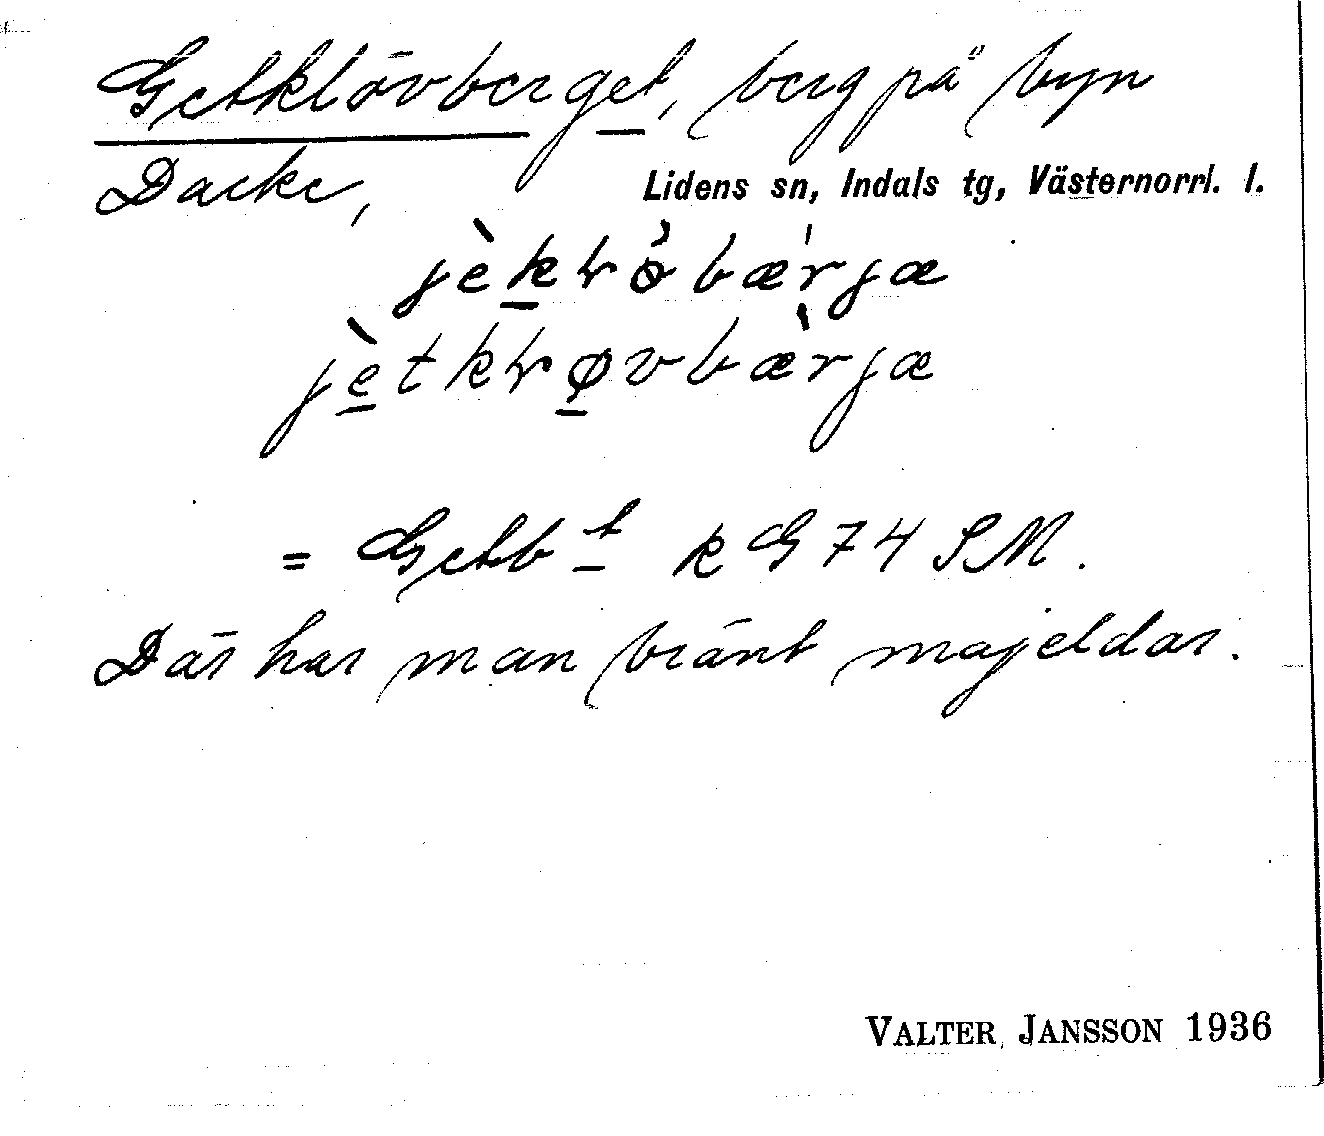 Getklövberget, berg på byn
Dacke,
Lidens sn, Indals tg, Västernorrl. l.
= Getb t k G 74 SM.
Där har man bränt majeldar.
VALTER JANSSON 1936